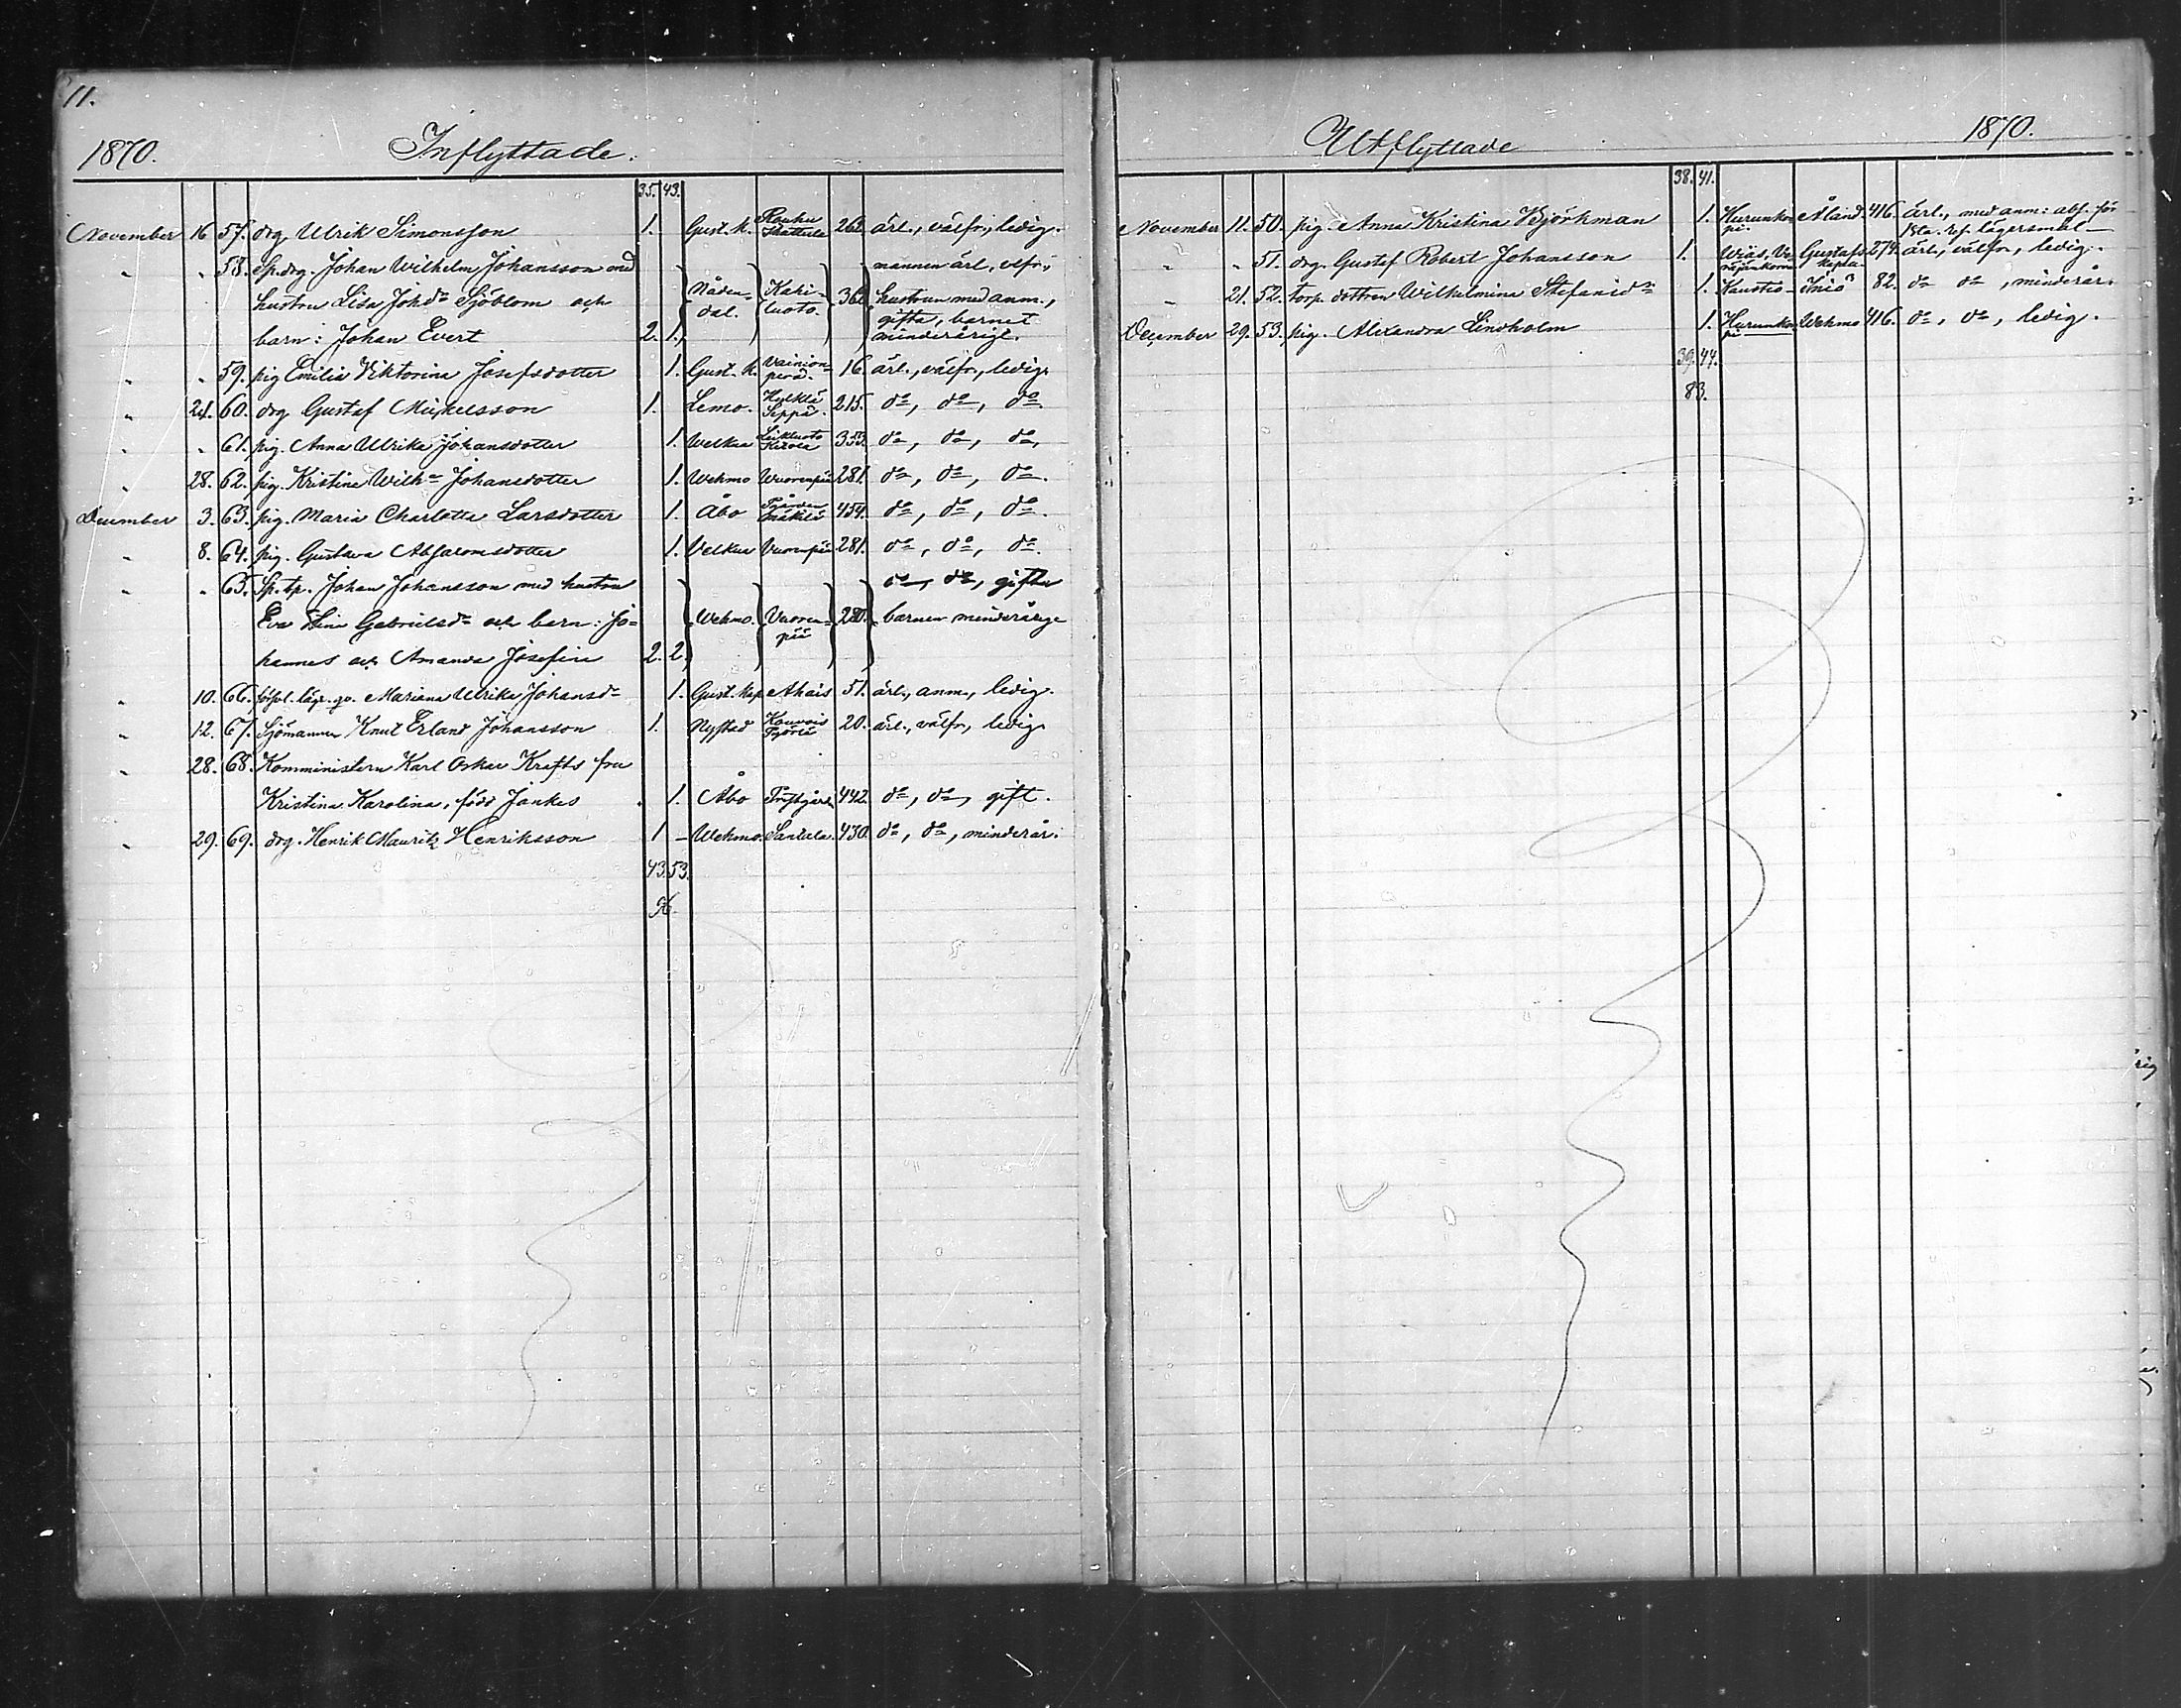 11.
1870. Inflyttade.
35. 43.
November 16 57. drg Ulrik Simonsson 1. Gust. k. Rauhu Skattula 262. ärl., välfr., ledig.
" " 58. Sp.drg. Johan Wilhelm Johansson med mannen ärl., vlfr.,
hustru Lisa Johd:r Sjöblom och Nådendal. Kakiluoto. 362. hustrun med anm., gifta, barnet
barn: Johan Evert 2. 1. minderårigt.
" " 59. pig Emilia Viktorina Josefsdotter 1. Gust. k. Vainionperä. 16. ärl., välfr., ledig.
" 21. 60. drg Gustaf Mickelsson 1. Lemo. Hylkilä Seppä. 215. d:o, d:o, d:o.
" " 61. pig. Anna Ulrika Johansdotter 1. Welkua 353. d:o, d:o, d:o,
" 28. 62. pig. Kristina Wilh:a Johansdotter 1. Wehmo Wuorenpää 281. d:o, d:o, d:o.
December 3. 63. pig. Maria Charlotta Larsdotter 1. Åbo 454. d:o, d:o, d:o.
" 8. 64. pig. Gustava Absaromsdotter 1. Velkua Vuorenpää 281. d:o, d:o, d:o.
" " 65. Sp.tp. Johan Johansson med hustru d:o, d:o, gifta
Eva Lina Gabrielsd:r och barn: Jo- Wehmo. Vuorenpää 280. barnen minderårige
hannes och Amanda Josefina 2. 2.
" 10. 66. förspl. lägr. qv. Mariana Ulrika Johansd:r 1. Gust. kap Ahais 51. ärl., anm., ledig.
" 12. 67. Sjömannen Knut Erland Johansson 1. Nystad Kauvois 20. ärl., välfr., ledig
" 28. 68. Komministern Karl Oskar Krafts fru
Kristina Karolina, född Jankes 1. Åbo 442. d:o, d:o, gift.
" 29. 69. drg. Henrik Mauritz Henriksson 1 – Wehmo. Santala. 430. d:o, d:o, minderår.
43. 53.
96.
Utflyttade 1870.
38. 41.
November 11. 50. pig. Anna Kristina Björkman 1. Hurunkorpi. Åland. 416. ärl., med anm: abs. för
1sta. ref. lägersmål –
" " 51. drg. Gustaf Robert Johansson 1. Gustafs kapla. 274. ärl., välfr., ledig.
" 21. 52. torp. dottren Wilhelmina Stefanid:r 1. Kaustio Iniö 82. d:o d:o, minderår.
December 29. 53. pig. Alexandra Lindholm 1. Hurunkorpi Wehmo 416. d:o, d:o, ledig.
39. 44.
83.